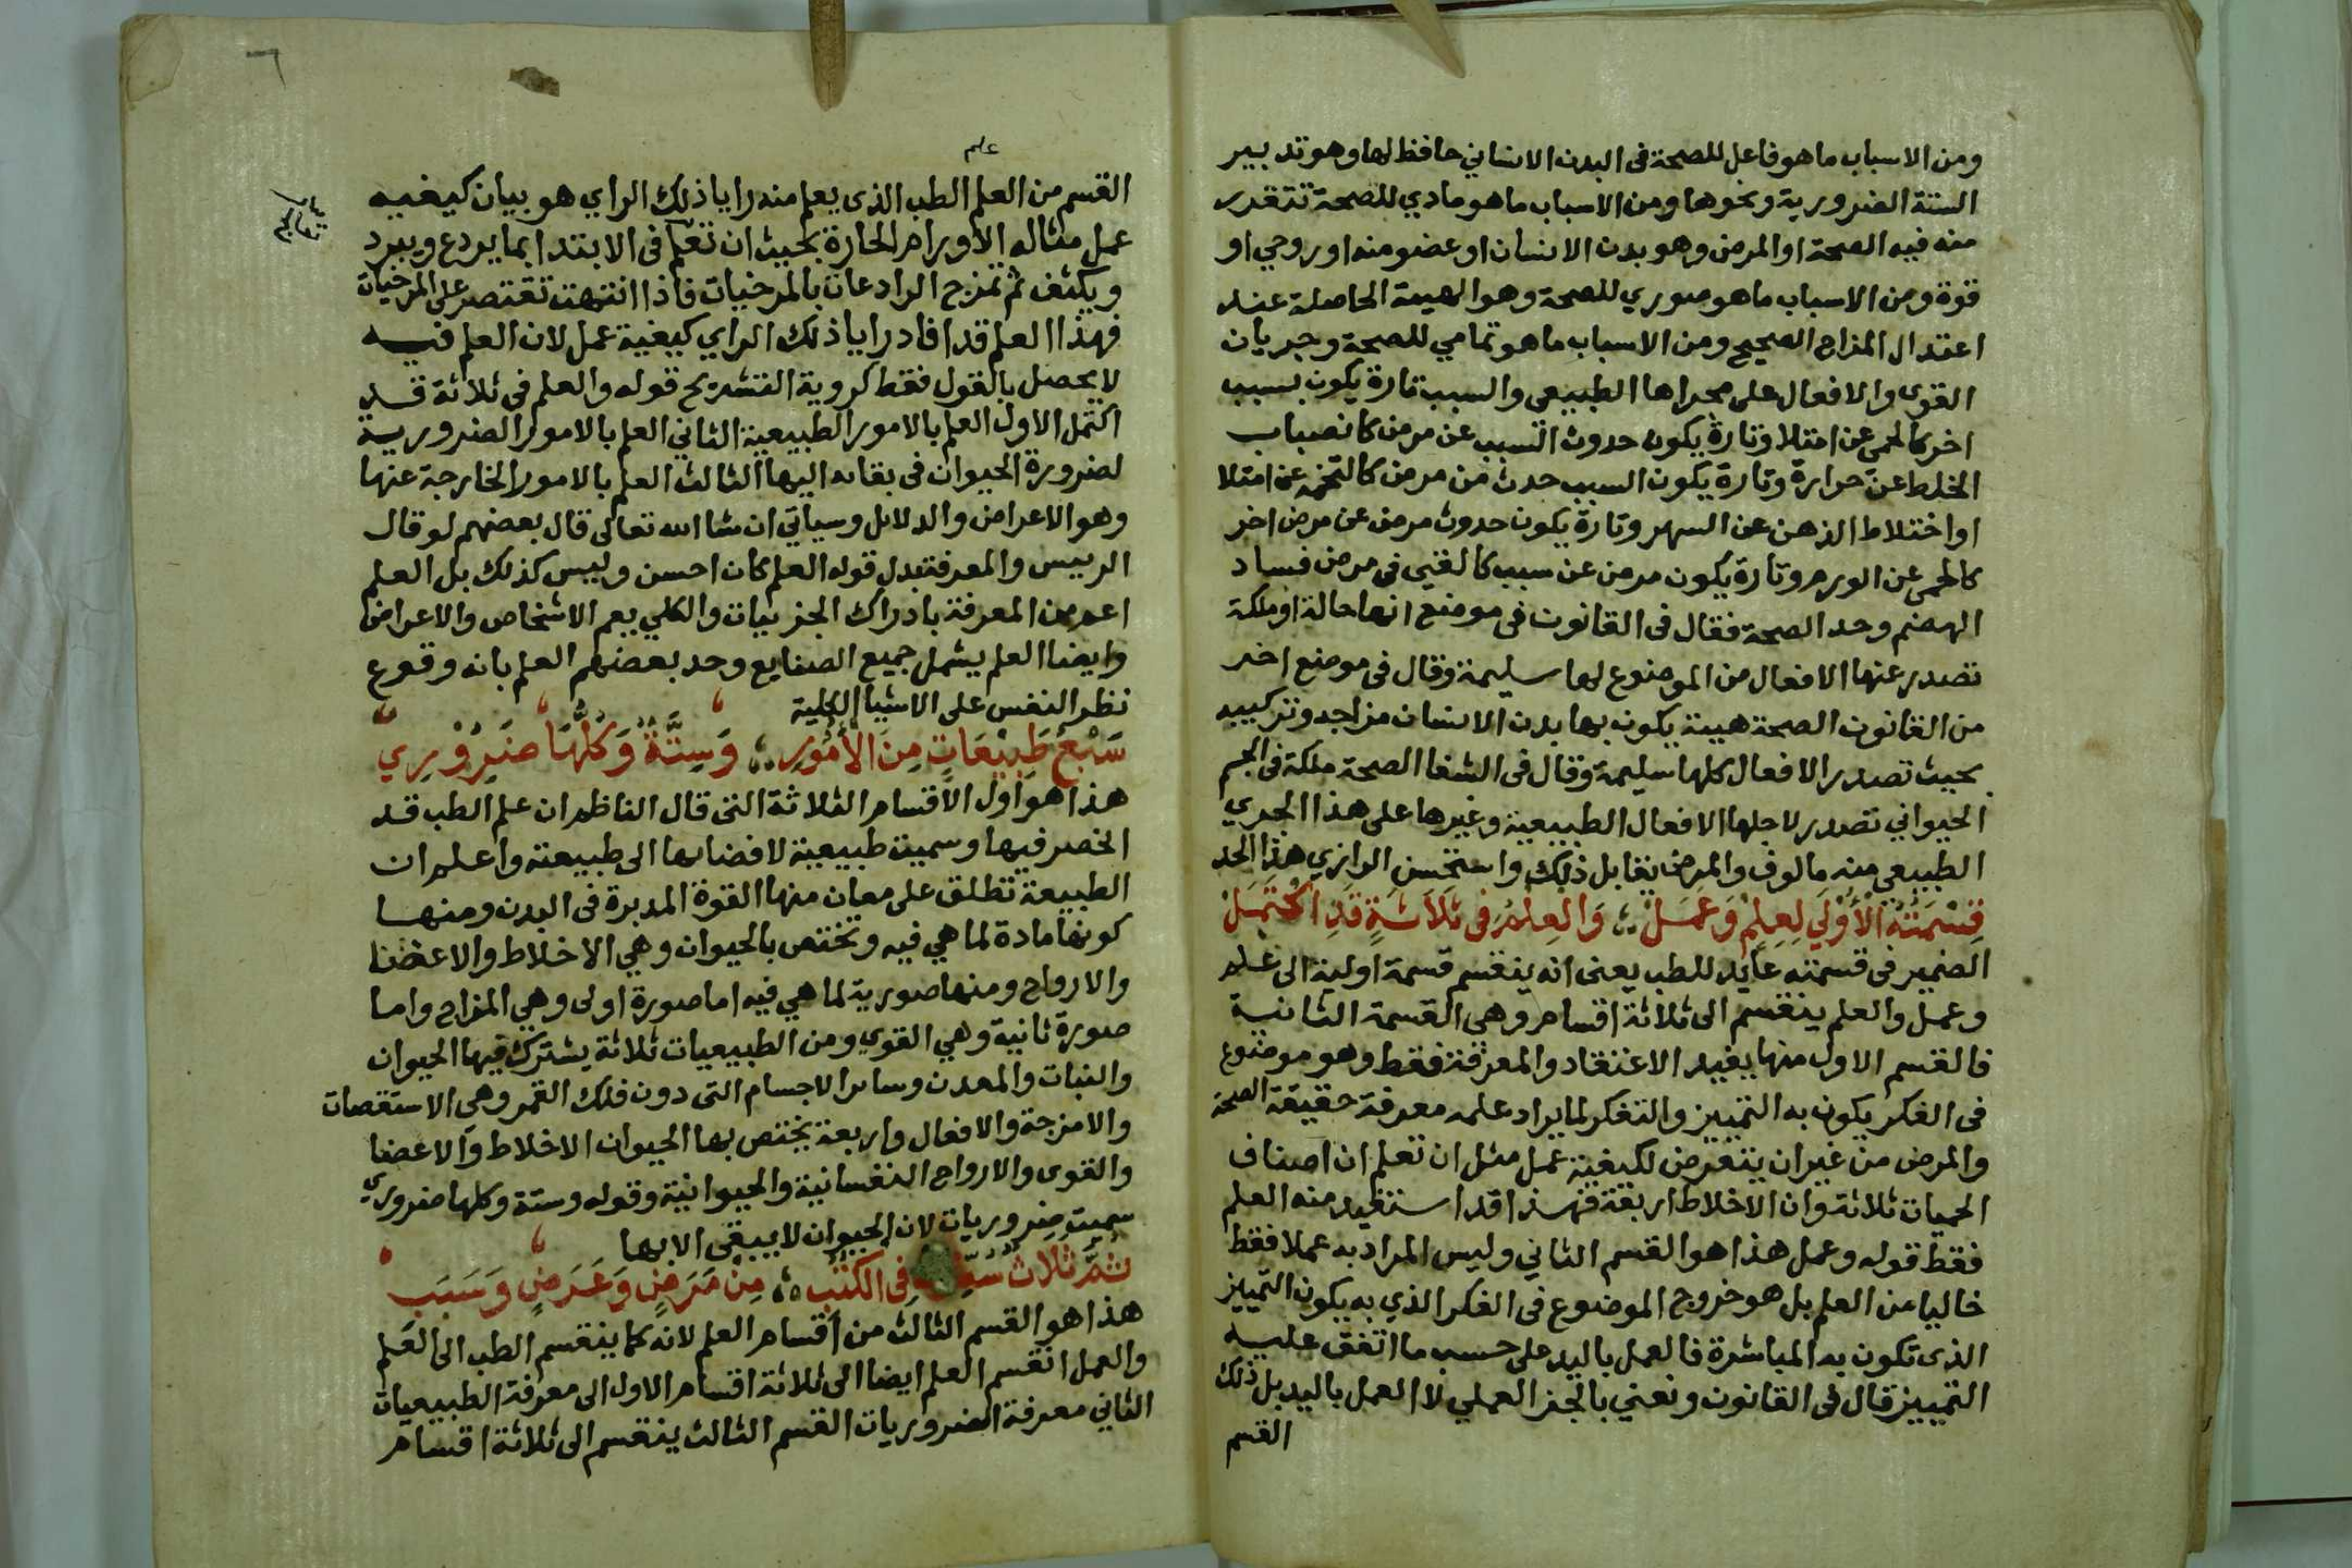 ومن الاسباب ما هو فاعل للصحة فى البدن الانساني حافظ لها وهو تدبير
الستة الضرورية ونحوها ومن الاسباب ما هو مادي للصحة تتقدر
منه فيه الصحة او المرض وهو بدن الانسان او عضو منه او روحي او
قوة ومن الاسباب ما هو صوري للصحة وهو الهيية الحاصلة عند
اعتدال المزاج الصحيح ومن الاسباب ما هو تمامي للصحة وجريان
القوى والافعال على مجراها الطبيعى والسبب تارة يكون بسبب
اخر كالحمى عن امتلا وتارة يكون حدوث السبب عن مرض كانصباب
الخلط عن حرارة وتارة يكون السبب حدث من مرض كالتخمه عن امتلا
او اختلاط الذهن عن السهر وتارة يكون حدوث مرض عن مرض اخر
كالحمى عن الورم وتارة يكون مرض عن سبب كالقيى فى مرض فساد
الهضم وحد الصحة فقال فى القانون فى موضع انها حالة او ملكة
تصدر عنها الافعال من الموضوع لها سليمة وقال فى موضع اخر
من القانون الصحة هيية يكون بها بدن الانسان مزاجه وتركيبه
بحيث تصدر الافعال كلها سليمة وقال فى الشفا الصحة ملكة فى الجسم
الحيواني تصدر لاجلها الافعال الطبيعية وغيرها على هذا المجري
الطبيعي منه مالوف والمرض يقابل ذلك واستحسن الرازي هذا الحد
قِسْمَتُهُ الْأُوْلَي لِعِلْمٍ وَعَمَلْ وَالعِلْمُ فى ثَلَاثَةٍ قَدِ اكْتَمَلْ
الضمير فى قسمته عايد للطب يعنى انه ينقسم قسمة اولية الى علم
وعمل والعلم ينقسم الى ثلاثة اقسام وهى القسمة الثانية
فالقسم الاول منها يفيد الاعتقاد والمعرفة فقط وهو موضوع
فى الفكر يكون به التمييز والتفكر لما يراد علمه معرفة حقيقة الصحة
والمرض من غير ان يتعرض لكيفية عمل مثل ان تعلم ان اصناف
الحميات ثلاثة وان الاخلاط اربعة فهذا قد استفيد منه العلم
فقط قوله وعمل هذا هو القسم الثاني وليس المراد به عملا فقط
خاليا عن العلم بل هو خروج الموضوع فى الفكر الذي به يكون التمييز
الذى تكون به المباشرة فالعمل باليد على حسب ما اتفق عليه
التمييز قال فى القانون ونعني بالجز العملي لا العمل باليد بل ذلك
القسم
علم
القسم من العلم الطب الذى يعلم منه رايا ذلك الراي هو بيان كيفيه
عمل مثاله الأورام الحارة بحيث ان تعلم فى الابتدا بما يردع ويبرد
ويكثف ثم تمزج الرادعات بالمرخيات فاذا انتهت تقتصر على المرخيات
فهذا العلم قد افاد رايا ذلك الراي كيفية عمل لان العلم فيه
لا يحصل بالقول فقط كروية التشريح قوله والعلم فى ثلاثة قد
اكتمل الاول العلم بالامور الطبيعية الثاني العلم بالامور الضرورية
لضرورة الحيوان فى بقايه اليها الثالث العلم بالامور الخارجة عنها
وهو الاعراض والدلايل وسياتي ان شا الله تعالى قال بعضهم لو قال
الرييس والمعرفة بدل قوله العلم كان احسن وليس كذلك بل العلم
اعم من المعرفة بادراك الجزييات والكلي يعم الاشخاص والاعراض
وايضا العلم يشمل جميع الصنايع وحد بعضهم العلم بانه وقوع
نظر النفس على الاشيا الكلية
سَبْعُ طَبِيْعَاتٍ مِنَ الأُمُورِ وَسِتَّةٌ وَكُلُّهَا ضَرُوْرِيِ
هذا هو اول الاقسام الثلاثة التى قال الناظم ان علم الطب قد
انحصر فيها وسميت طبيعية لافضايها الى طبيعته واعلم ان
الطبيعة تطلق على معان منها القوة المدبرة فى البدن ومنها
كونها مادة لما هي فيه وتختص بالحيوان وهي الاخلاط والاعضا
والارواح ومنها صورية لما هي فيه اما صورة اولى وهي المزاج واما
صورة ثانية وهي القوي ومن الطبيعيات ثلاثة يشترك فيها الحيوان
والنبات والمعدن وساير الاجسام التى دون فلك القمر وهي الاستقصات
والامزجة والافعال واربعة يختص بها الحيوان الاخلاط والاعضا
والقوى والارواح النفسانية والحيوانية وقوله وستة وكلها ضروري
سميت ضروريات لان الحيوان لا يبقى الا بها
ثُمَّ ثَلَاثٌ فِى الكُتُبِ مِنْ مَرَضٍ وَعَرَضٍ وَسَبَبِ
هذا هو القسم الثالث من اقسام العلم لانه كما ينقسم الطب الى العلم
والعمل انقسم العلم ايضا الى ثلاثة اقسام الاول الى معرفة الطبيعيات
الثاني معرفة الضروريات القسم الثالث ينقسم الى ثلاثة اقسام